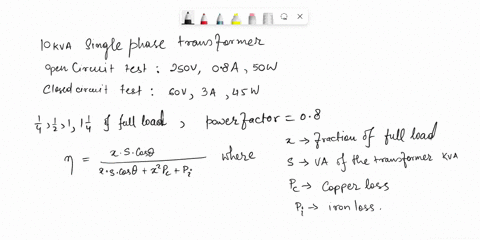 10KVA Single phase transformer
open Circuit test : 250V, 0.8A, 50W
Closed circuit test : 60V, 3A, 45W
1/4, 1/2, 1, 1 1/4 of full load, power factor = 0.8
η = x·S·Cosθ / x·s·cosθ + x²Pc + Pi where
x → fraction of full load
S → VA of the transformer KVA
Pc → Copper loss
Pi → iron loss.